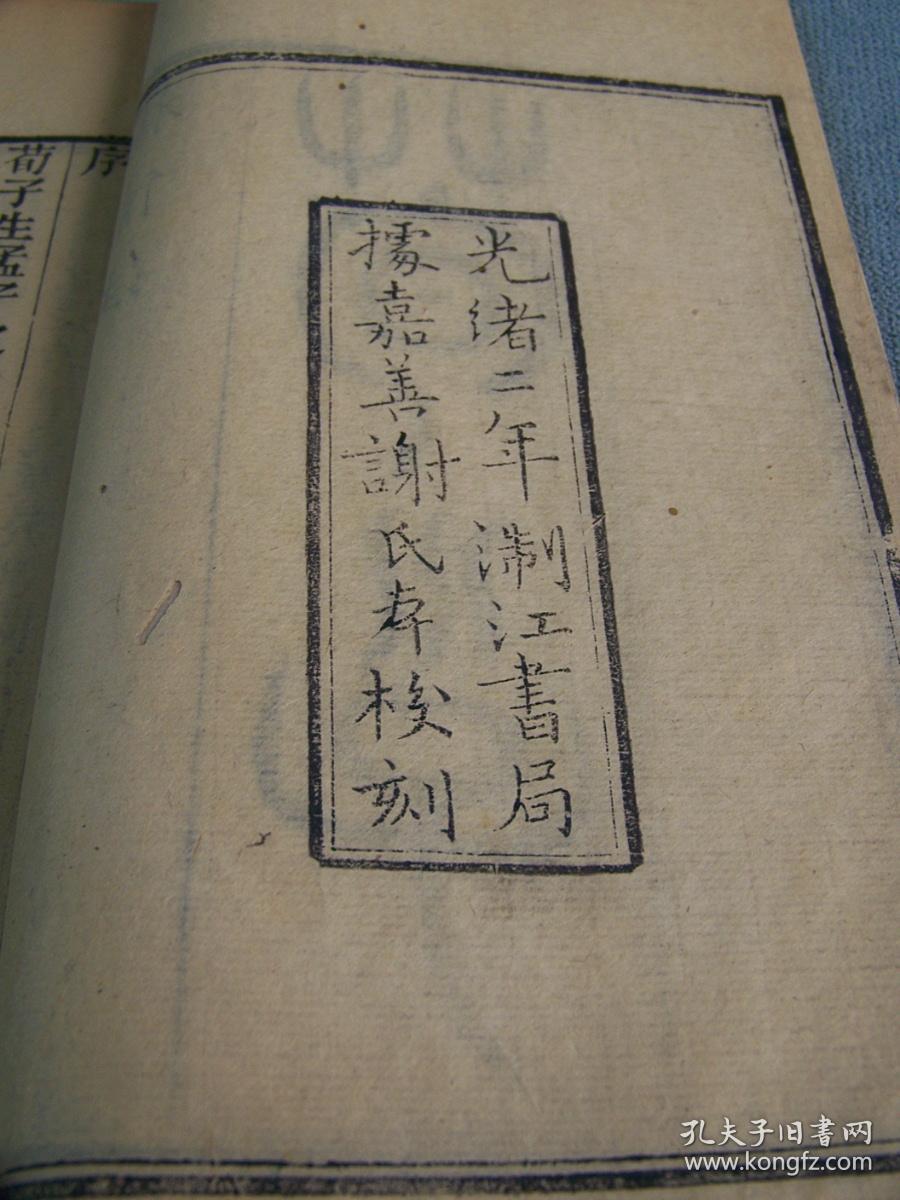 光緒二年淛江書局
據嘉善謝氏本校刻
序
荀子生孟子之
孔夫子旧書网
www.kongfz.com